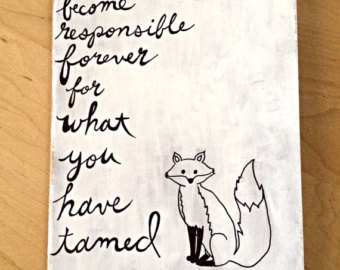 become
responsible
forever
for
what
you
have
tamed